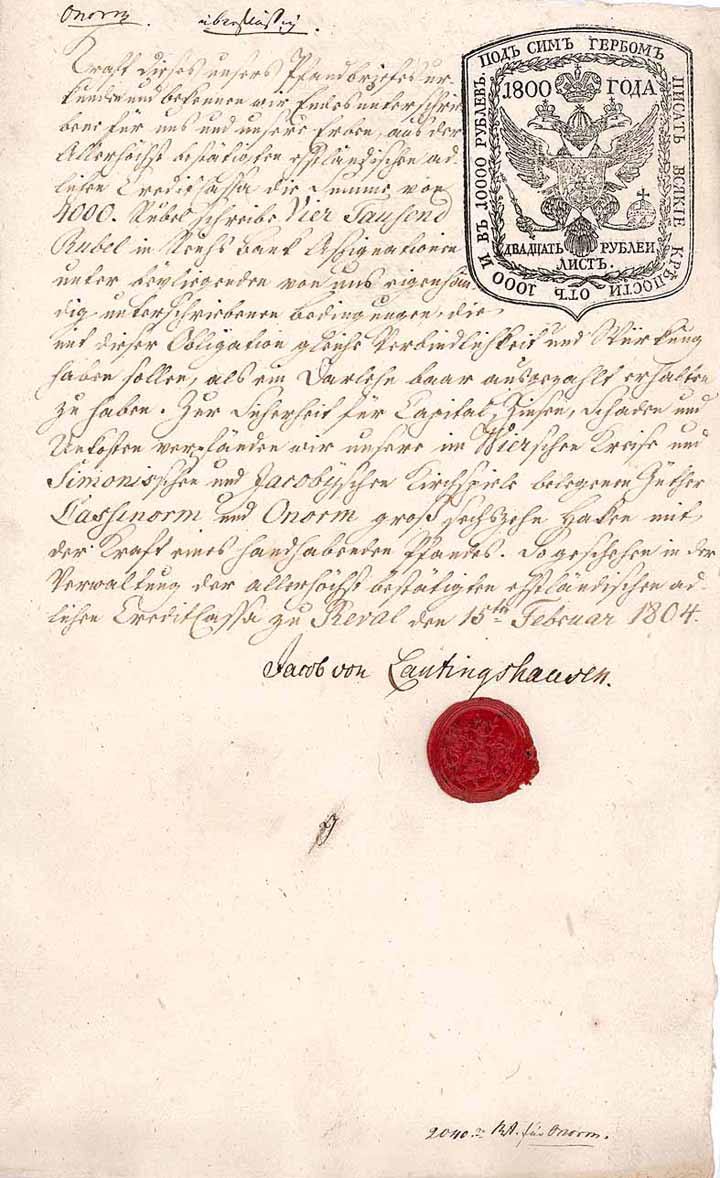 Onorm. überflüssig.
Kraft dieses unsers Pfandbriefes ur-
kunden und bekennen wir Endes unterschrie-
bene für uns und unsere Erben, aus der
Allerhöchst bestätigten ehstländischen ad-
lichen Credit Cassa die Summe von
4000. Rubel schreibe Vier Tausend
Rubel in Reichs banco Assignationen
unter beyliegenden von uns eigenhän-
dig unterschriebenen Bedingungen, die
mit dieser Obligation gleiche Verbindlichkeit und Würkung
haben sollen, als ein Darlehn baar ausgezahlt erhalten
zu haben. Zur Sicherheit für Capital, Zinsen, Schaden und
Unkosten verpfänden wir unsere im Wierschen Kreise und
Simonisschen und Jacobyschen Kirchspiele belegenen Güther
Cassinorm und Onorm groß sechszehn Haken mit
der Kraft eines handhabenden Pfandes. So geschehen in der
Verwaltung der allerhöchst bestätigten ehstländischen ad-
lichen Credit Cassa zu Reval den 15ten Februar 1804.
Jacob von Lantingshausen.
2040. für Onorm.
ПОДЪ СИМЪ ГЕРБОМЪ ПИСАТЬ ВСЯКІЕ КРѢПОСТИ ОТЪ 1000 И ВЪ 10000 РУБЛЕВЪ.
1800 ГОДА
ДВАДЦАТЬ РУБЛЕИ
ЛИСТЪ.